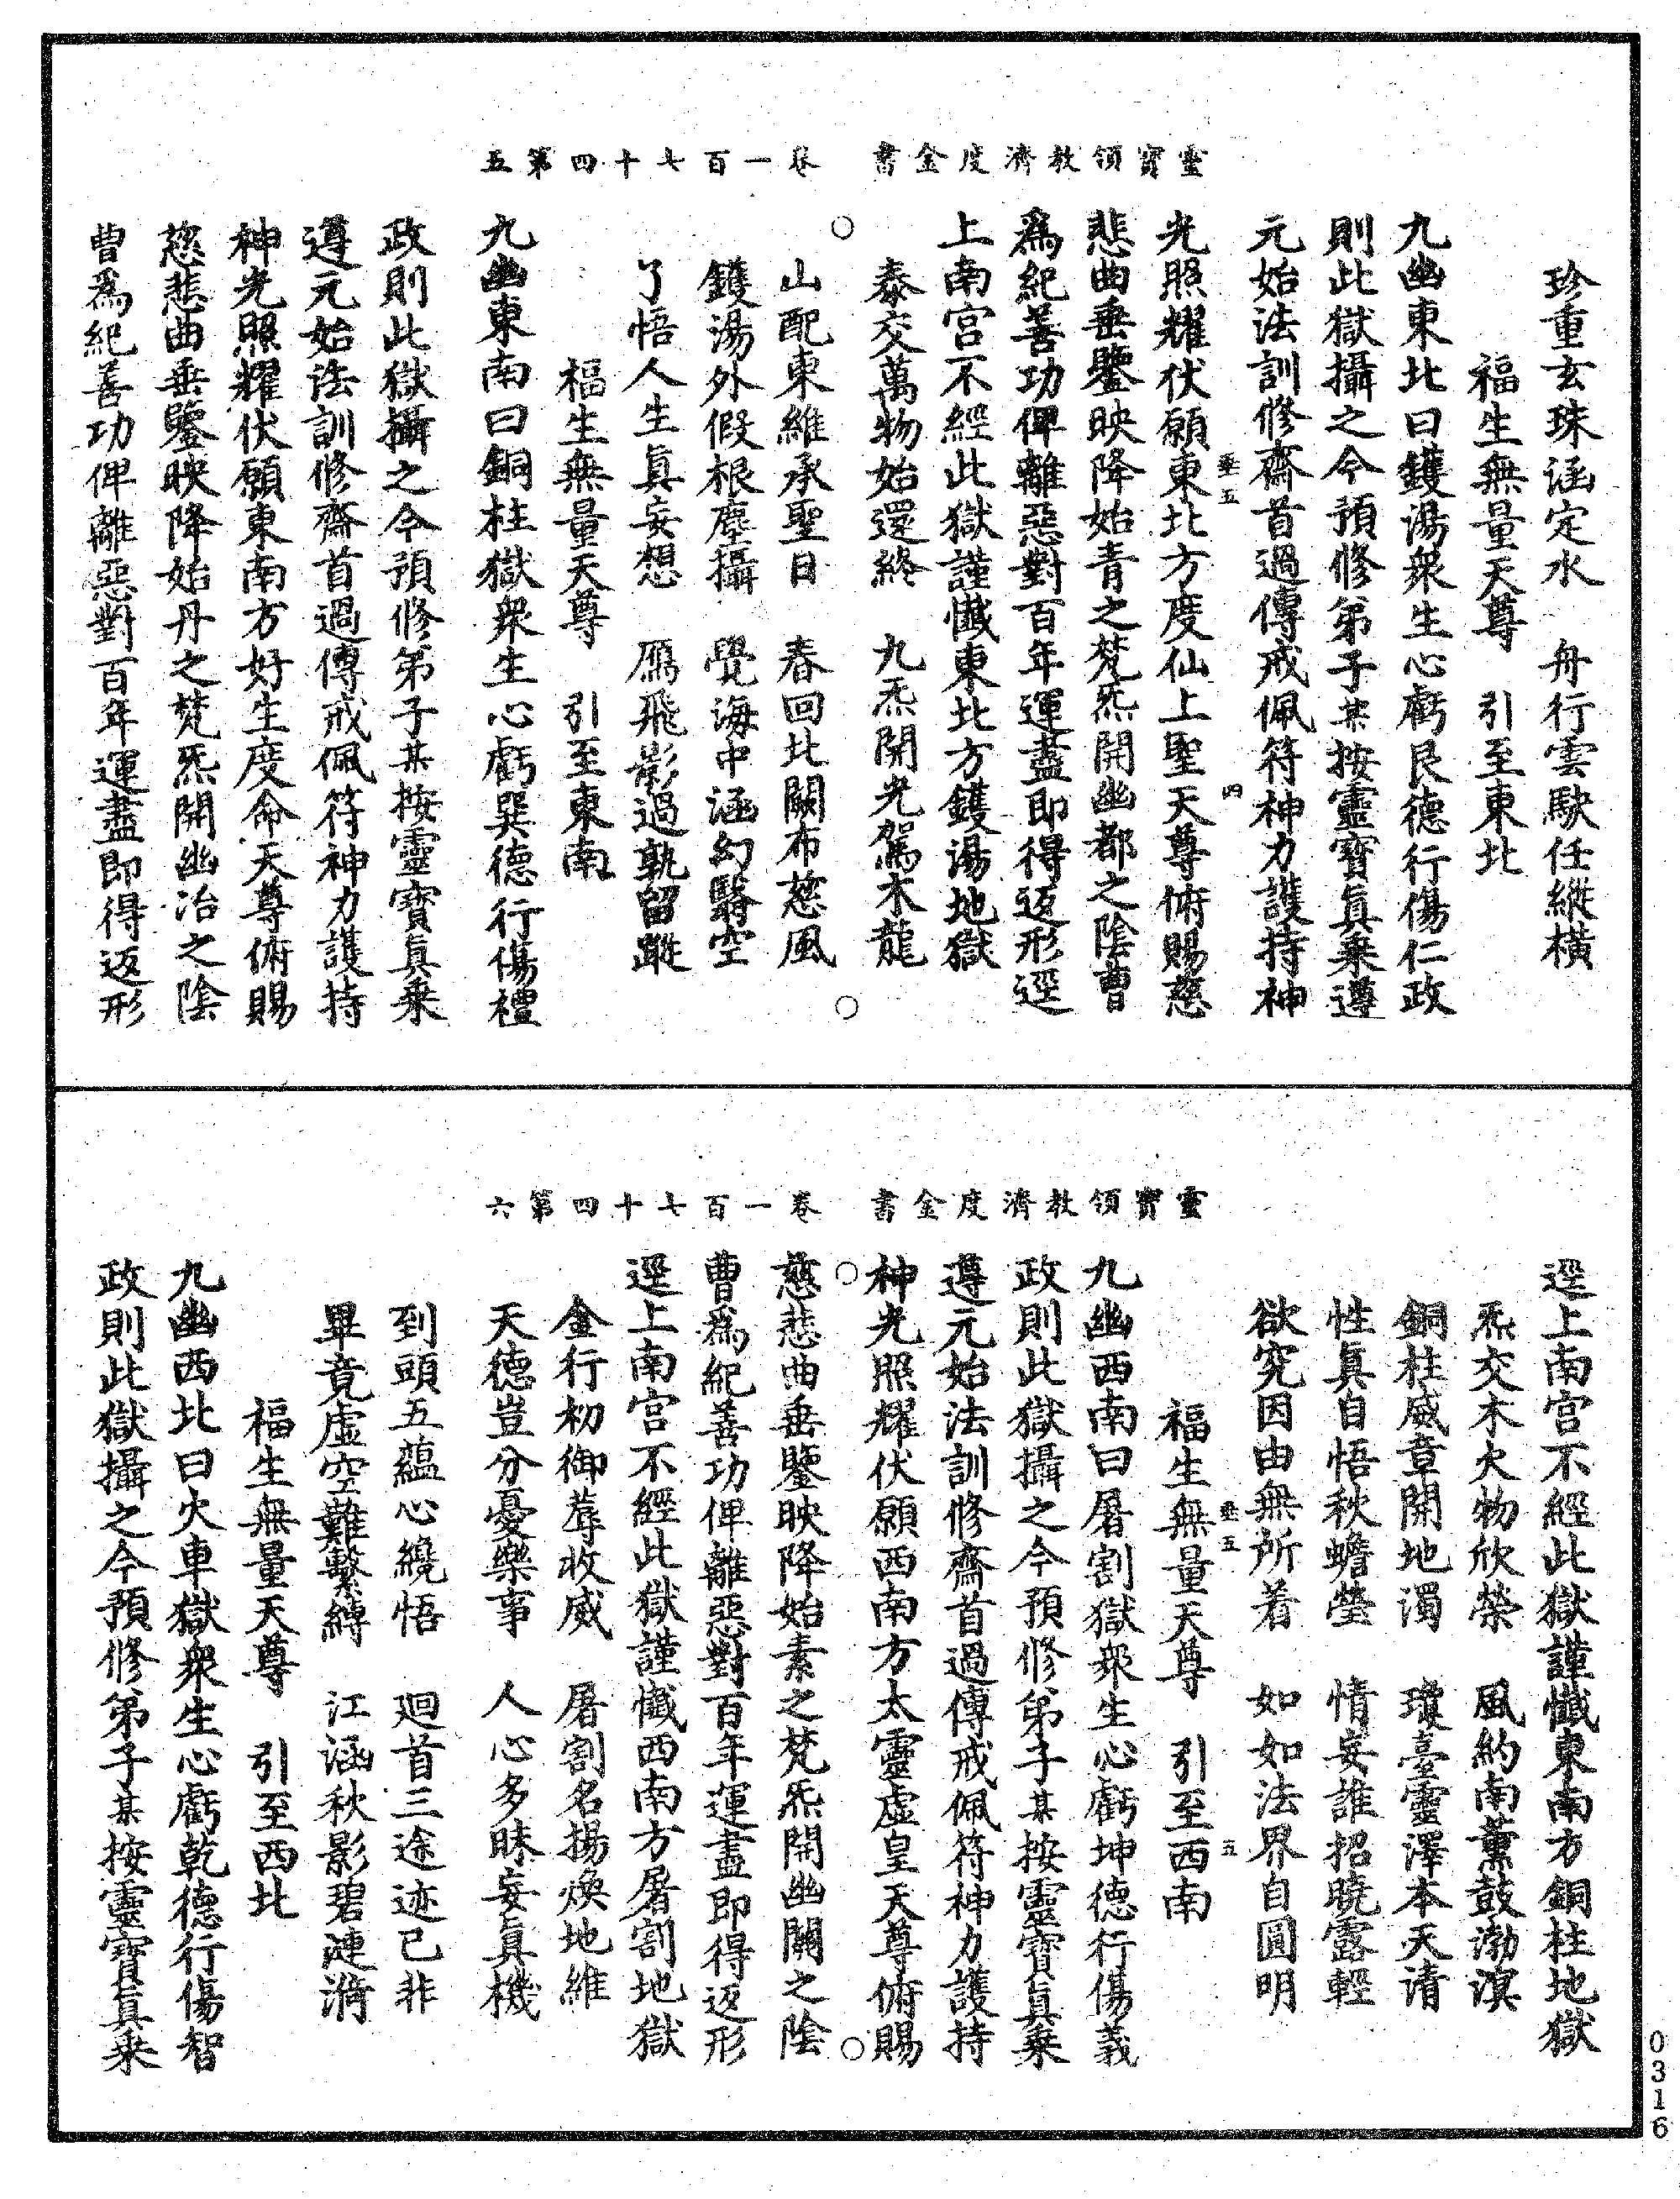 靈寶領教濟度金書　卷一百七十四第五
珍重玄珠涵定水　舟行雲駛任縱橫
福生無量天尊　引至東北
九幽東北曰鑊湯獄衆生心虧艮德行傷仁政
則此獄攝之今預修弟子某按靈寶真乗遵
元始法訓修齋首過傳戒佩符神力護持神
垂五　四
光照耀伏願東北方度仙上聖天尊俯賜慈
悲曲垂鑒映降始青之梵炁開幽都之陰曹
爲紀善功俾離惡對百年運盡即得返形逕
上南宮不經此獄謹懺東北方鑊湯地獄
泰交萬物始還終　九炁開光駕木龍
山配東維承聖日　春回北闕布慈風
鑊湯外假根塵攝　覺海中涵幻翳空
了悟人生真妄想　鴈飛影過孰留蹤
福生無量天尊　引至東南
九幽東南曰銅柱獄衆生心虧巽德行傷禮
政則此獄攝之今預修弟子某按靈寶真乗
遵元始法訓修齋首過傳戒佩符神力護持
神光照耀伏願東南方好生度命天尊俯賜
慈悲曲垂鑒映降始丹之梵炁開幽冶之陰
曹爲紀善功俾離惡對百年運盡即得返形
靈寶領教濟度金書　卷一百七十四第六
逕上南宮不經此獄謹懺東南方銅柱地獄
炁交木火物欣榮　風約南薰鼓渤溟
銅柱威章開地濁　瓊臺靈澤本天清
性真自悟秋蟾瑩　情妄誰招曉露輕
欲究因由無所着　如如法界自圓明
垂五　五
福生無量天尊　引至西南
九幽西南曰屠割獄衆生心虧坤德行傷義
政則此獄攝之今預修弟子某按靈寶真乗
遵元始法訓修齋首過傳戒佩符神力護持
神光照耀伏願西南方太靈虛皇天尊俯賜
慈悲曲垂鑒映降始素之梵炁開幽關之陰
曹爲紀善功俾離惡對百年運盡即得返形
逕上南宮不經此獄謹懺西南方屠割地獄
金行初御蓐收威　屠割名揚煥地維
天德豈分憂樂事　人心多昧妄真機
到頭五蘊心纔悟　迴首三途迹已非
畢竟虛空難繫縛　江涵秋影碧漣漪
福生無量天尊　引至西北
九幽西北曰火車獄衆生心虧乾德行傷智
政則此獄攝之今預修弟子某按靈寶真乗
0316